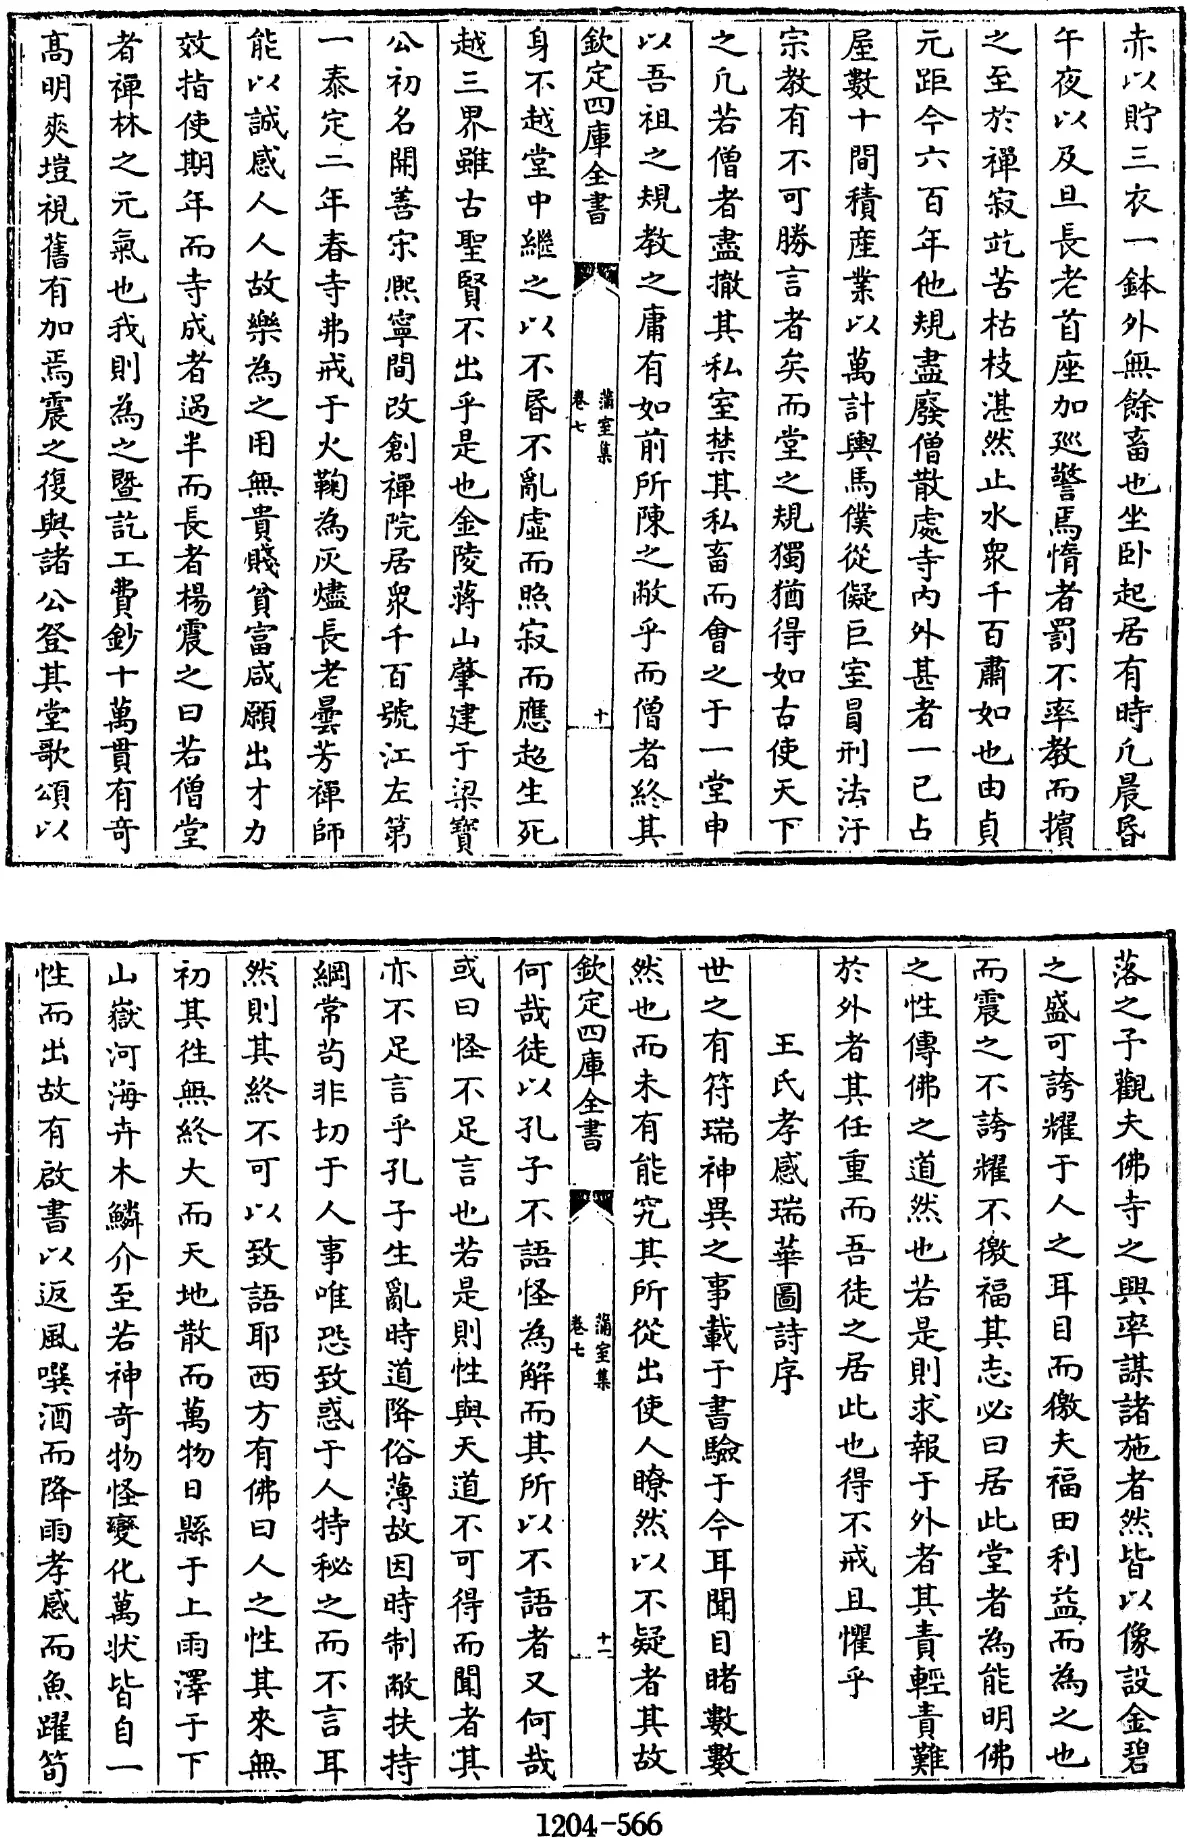 赤以貯三衣一鉢外無餘畜也坐卧起居有時凢晨昏
午夜以及旦長老首座加廵警焉惰者罰不率教而擯
之至於禪寂竝苦枯枝湛然止水衆千百肅如也由貞
元距今六百年他規盡廢僧散處寺内外甚者一己占
屋數十間積産業以萬計輿馬僕從儗巨室冒刑法汙
宗教有不可勝言者矣而堂之規獨猶得如古使天下
之凢若僧者盡撤其私室禁其私畜而會之于一堂申
以吾祖之規教之庸有如前所陳之敝乎而僧者終其
欽定四庫全書
蒲室集
卷七
十
身不越堂中繼之以不昏不亂虛而照寂而應超生死
越三界雖古聖賢不出乎是也金陵蔣山肇建于梁寶
公初名開善宋熈寧間改創禪院居衆千百號江左第
一泰定二年春寺弗戒于火鞠為灰燼長老曇芳禪師
能以誠感人人故樂為之用無貴賤貧富咸願出才力
效指使期年而寺成者過半而長者楊震之曰若僧堂
者禪林之元氣也我則為之曁訖工費鈔十萬貫有奇
高明爽塏視舊有加焉震之復與諸公登其堂歌頌以
落之予觀夫佛寺之興率謀諸施者然皆以像設金碧
之盛可誇耀于人之耳目而徼夫福田利益而為之也
而震之不誇耀不徼福其志必曰居此堂者為能明佛
之性傳佛之道然也若是則求報于外者其責輕責難
於外者其任重而吾徒之居此也得不戒且懼乎
王氏孝感瑞華圖詩序
世之有符瑞神異之事載于書驗于今耳聞目睹數數
然也而未有能究其所從出使人瞭然以不疑者其故
欽定四庫全書
蒲室集
卷七
十一
何哉徒以孔子不語怪為解而其所以不語者又何哉
或曰怪不足言也若是則性與天道不可得而聞者其
亦不足言乎孔子生亂時道降俗薄故因時制敝扶持
綱常茍非切于人事唯恐致惑于人特秘之而不言耳
然則其終不可以致語耶西方有佛曰人之性其來無
初其徃無終大而天地散而萬物日縣于上雨澤于下
山嶽河海卉木鱗介至若神奇物怪變化萬狀皆自一
性而出故有啟書以返風噀酒而降雨孝感而魚躍筍
1204-566